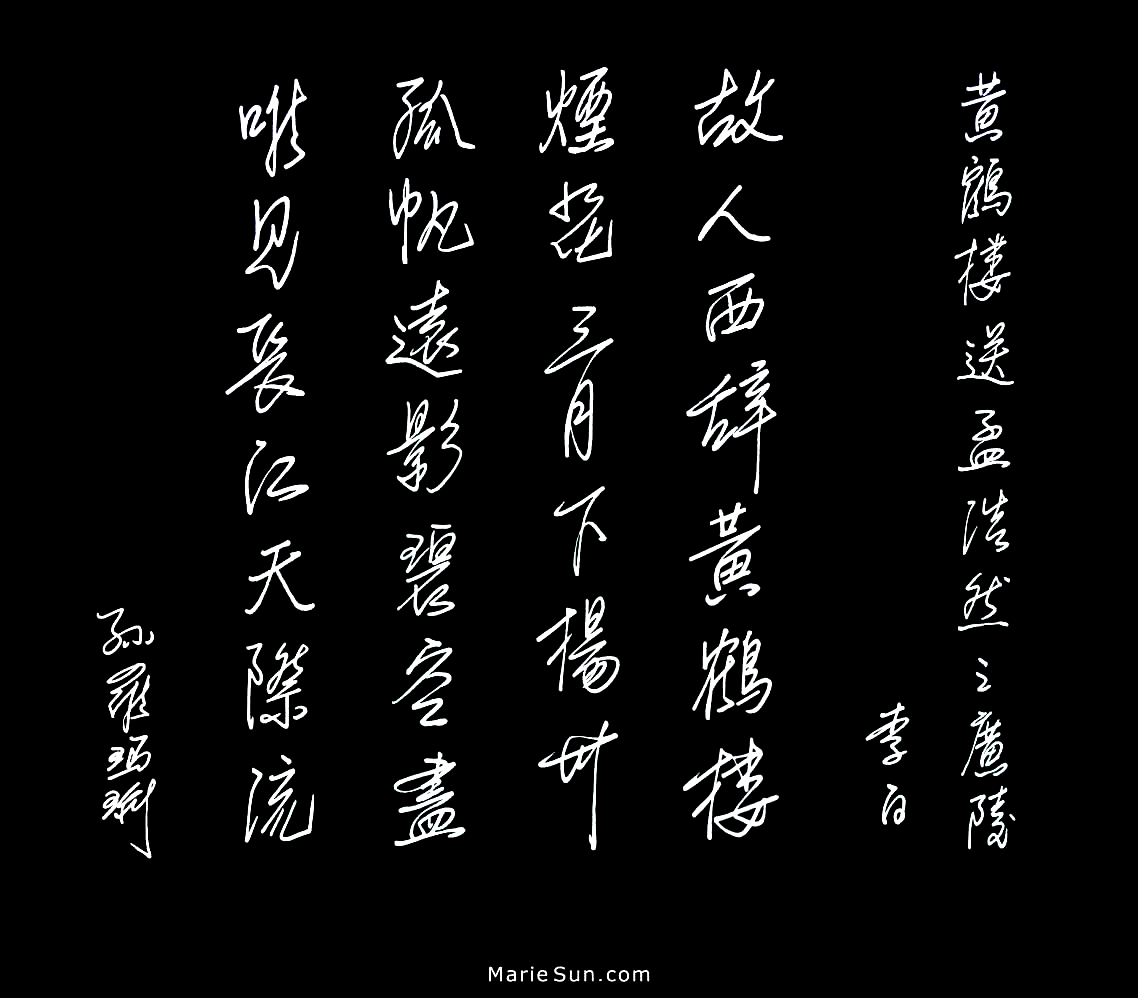 黃鶴樓送孟浩然之廣陵
李白
故人西辭黃鶴樓
煙花三月下揚州
孤帆遠影碧空盡
唯見長江天際流
孫羅瑪琍
MarieSun.com